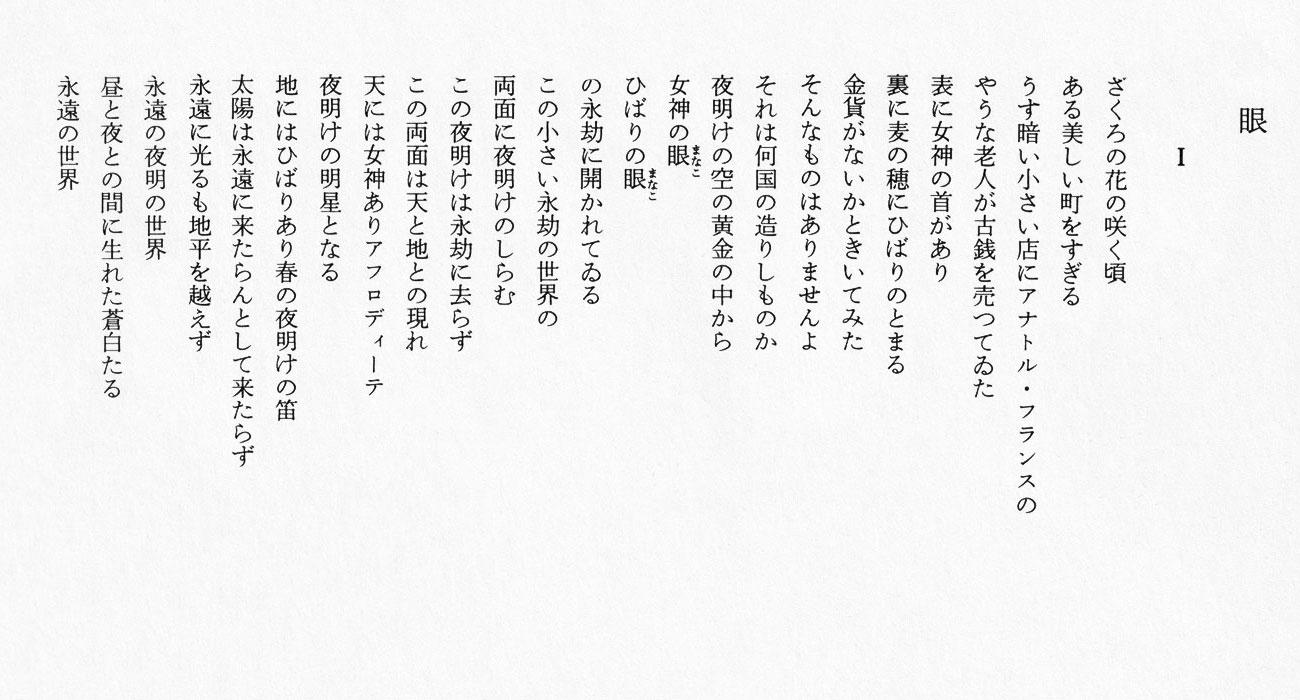 眼
I
ざくろの花の咲く頃
ある美しい町をすぎる
うす暗い小さい店にアナトル・フランスの
やうな老人が古銭を売つてゐた
表に女神の首があり
裏に麦の穂にひばりのとまる
金貨がないかときいてみた
そんなものはありませんよ
それは何国の造りしものか
夜明けの空の黄金の中から
女神の眼まなこ
ひばりの眼まなこ
の永劫に開かれてゐる
この小さい永劫の世界の
両面に夜明けのしらむ
この夜明けは永劫に去らず
この両面は天と地との現れ
天には女神ありアフロディーテ
夜明けの明星となる
地にはひばりあり春の夜明けの笛
太陽は永遠に来たらんとして来たらず
永遠に光るも地平を越えず
永遠の夜明の世界
昼と夜との間に生れた蒼白たる
永遠の世界